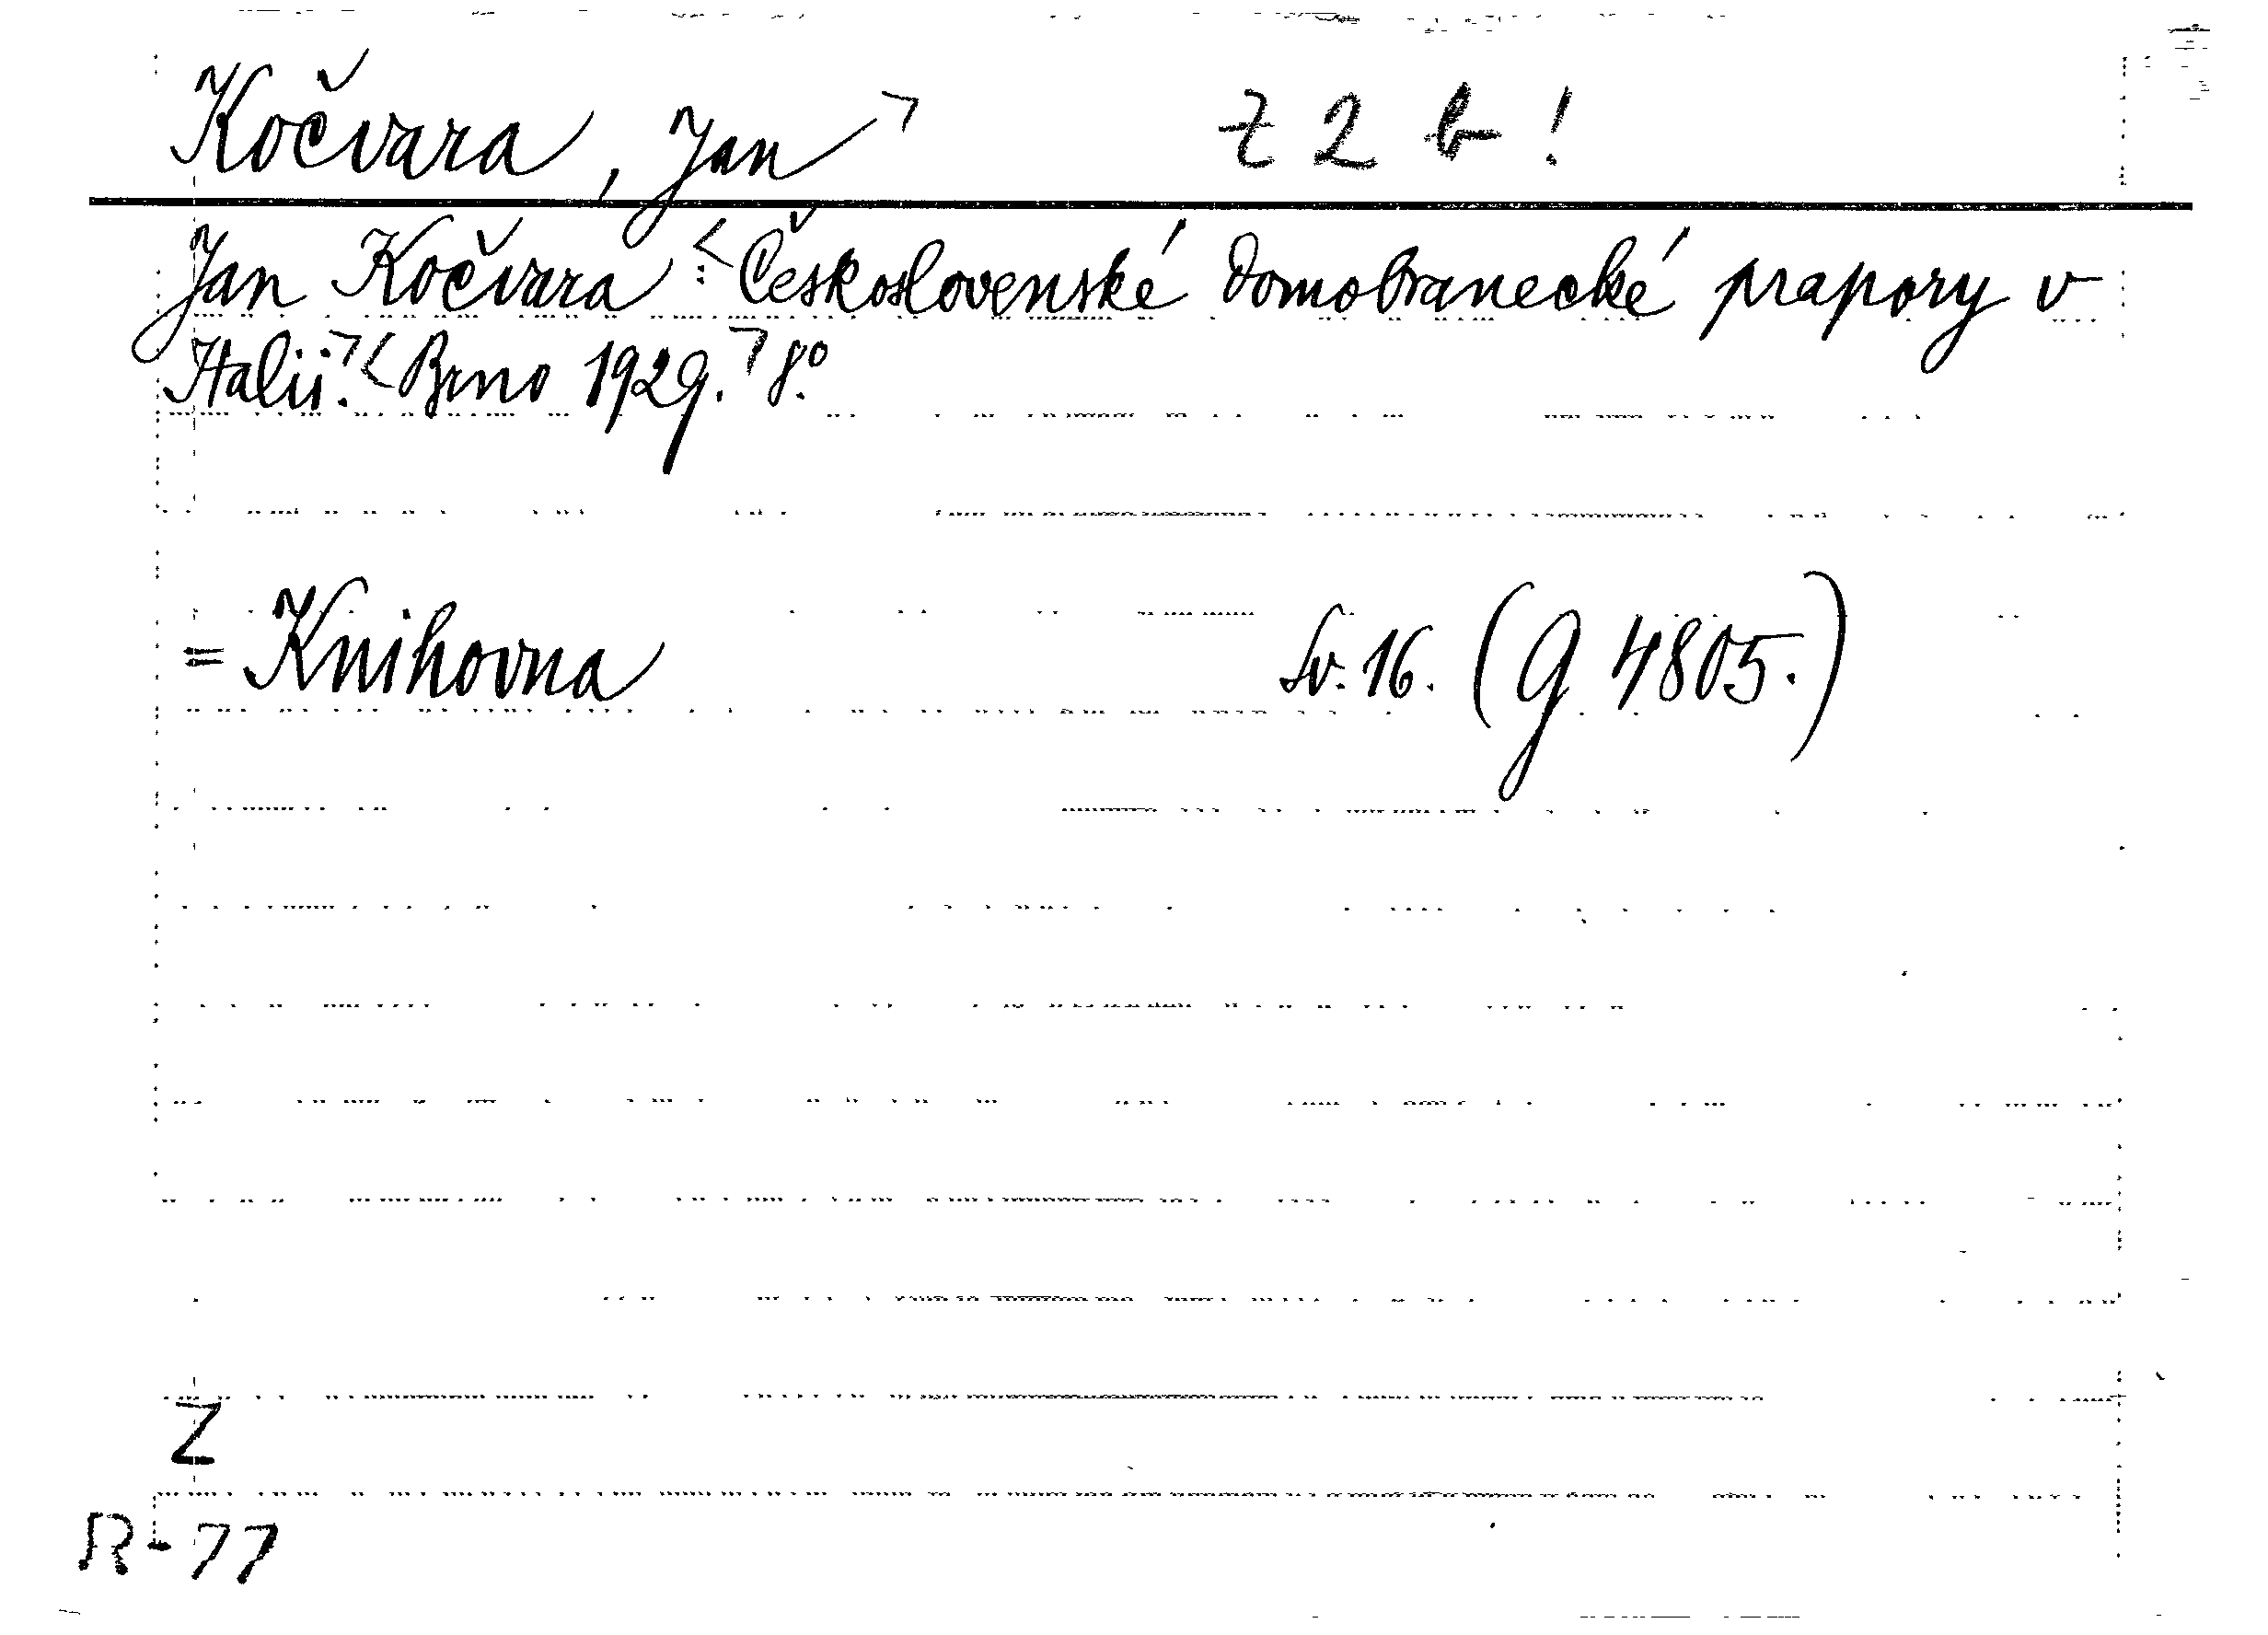 Kočvara, Jan z 2 b !
Jan Kočvara: Československé domobranecké prapory v
Italii. Brno 1929. 8°.
= Knihovna Sv. 16. (G 4805.)
Z
R-77